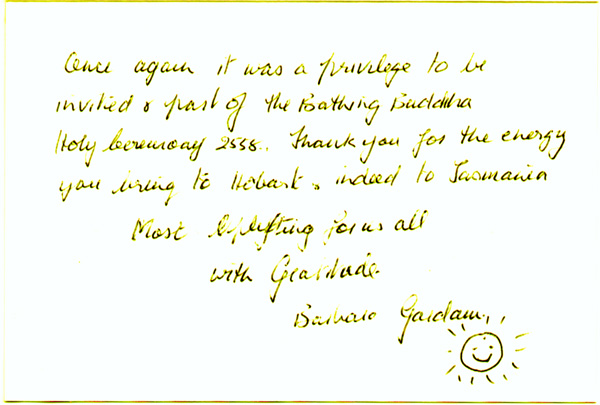 Once again it was a privilege to be
invited & part of the Bathing Buddha
Holy Ceremony 2558. Thank you for the energy
you bring to Hobart & indeed to Tasmania
Most Uplifting for us all
with Gratitude
Barbara Gardam